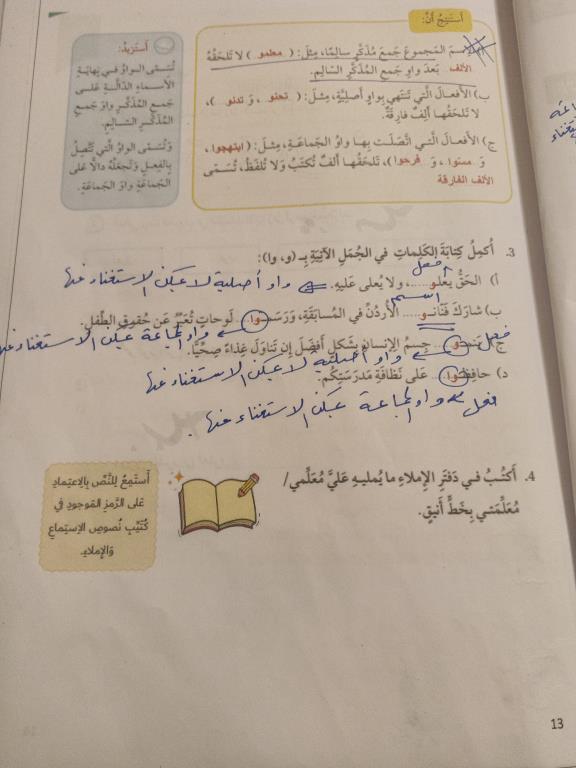 أَستَنتِجُ أنَّ:
الاسم المَجموعَ جَمعَ مُذَكَّرٍ سالِمًا، مِثلَ: ( معلمو ) لا تَلحَقُهُ
الألف بَعدَ واوِ جَمعِ المُذَكَّرِ السّالِمِ.
ب) الأَفعالَ الَّتي تَنتَهي بِواوٍ أَصلِيَّةٍ، مِثلَ: ( تحنو ، وَ تدنو )،
لا تَلحَقُها أَلِفٌ فارِقَةٌ.
ج) الأَفعالَ الَّتي اتَّصَلَت بِها واوُ الجَماعَةِ، مِثلَ: ( ابتهجوا ،
وَ ، وَ فرحوا )، تَلحَقُها أَلِفٌ تُكتَبُ وَلا تُلفَظُ، تُسَمّى
الألف الفارقة
أَستَزيدُ:
تُسَمّى الواوُ في نِهايَةِ
الأَسماءِ الدّالَّةِ عَلى
جَمعِ المُذَكَّرِ واوَ جَمعِ
المُذَكَّرِ السّالِمِ.
وَتُسَمّى الواوُ الَّتي تَتَّصِلُ
بِالفِعلِ وَتَجعَلُهُ دالًّا عَلى
الجَماعَةِ واوَ الجَماعَةِ.
3. أُكمِلُ كِتابَةَ الكَلِماتِ في الجُمَلِ الآتِيَةِ بِـ (و، وا):
فعل
أ) الحَقُّ يَعْلو.....، ولا يُعلى عَليهِ. واو أصلية لا يمكن الاستغناء عنها
اسم
ب) شارَكَ فَنّانـو.... الأُردُنِّ في المُسابَقَةِ، وَرَسَمـوا. لَوحاتٍ تُعَبِّرُ عَن حُقوقِ الطِّفلِ.
واو الجماعة يمكن الاستغناء عنها
فعل
ج) يَنمـو.. جِسمُ الإِنسانِ بِشَكلٍ أَفضَلَ إِن تَناوَلَ غِذاءً صِحِّيًّا.
واو أصلية لا يمكن الاستغناء عنها
د) حافِظـوا. عَلى نَظافَةِ مَدرَسَتِكُم.
فعل واو الجماعة يمكن الاستغناء عنها.
4. أَكتُبُ في دَفتَرِ الإِملاءِ ما يُمليهِ عَلَيَّ مُعَلِّمي/
مُعَلِّمَتي بِخَطٍّ أَنيقٍ.
أَستَمِعُ لِلنَّصِّ بِالاعتِمادِ
عَلى الرَّمزِ المَوجودِ في
كُتَيِّبِ نُصوصِ الاستِماعِ
وَالإِملاءِ.
13